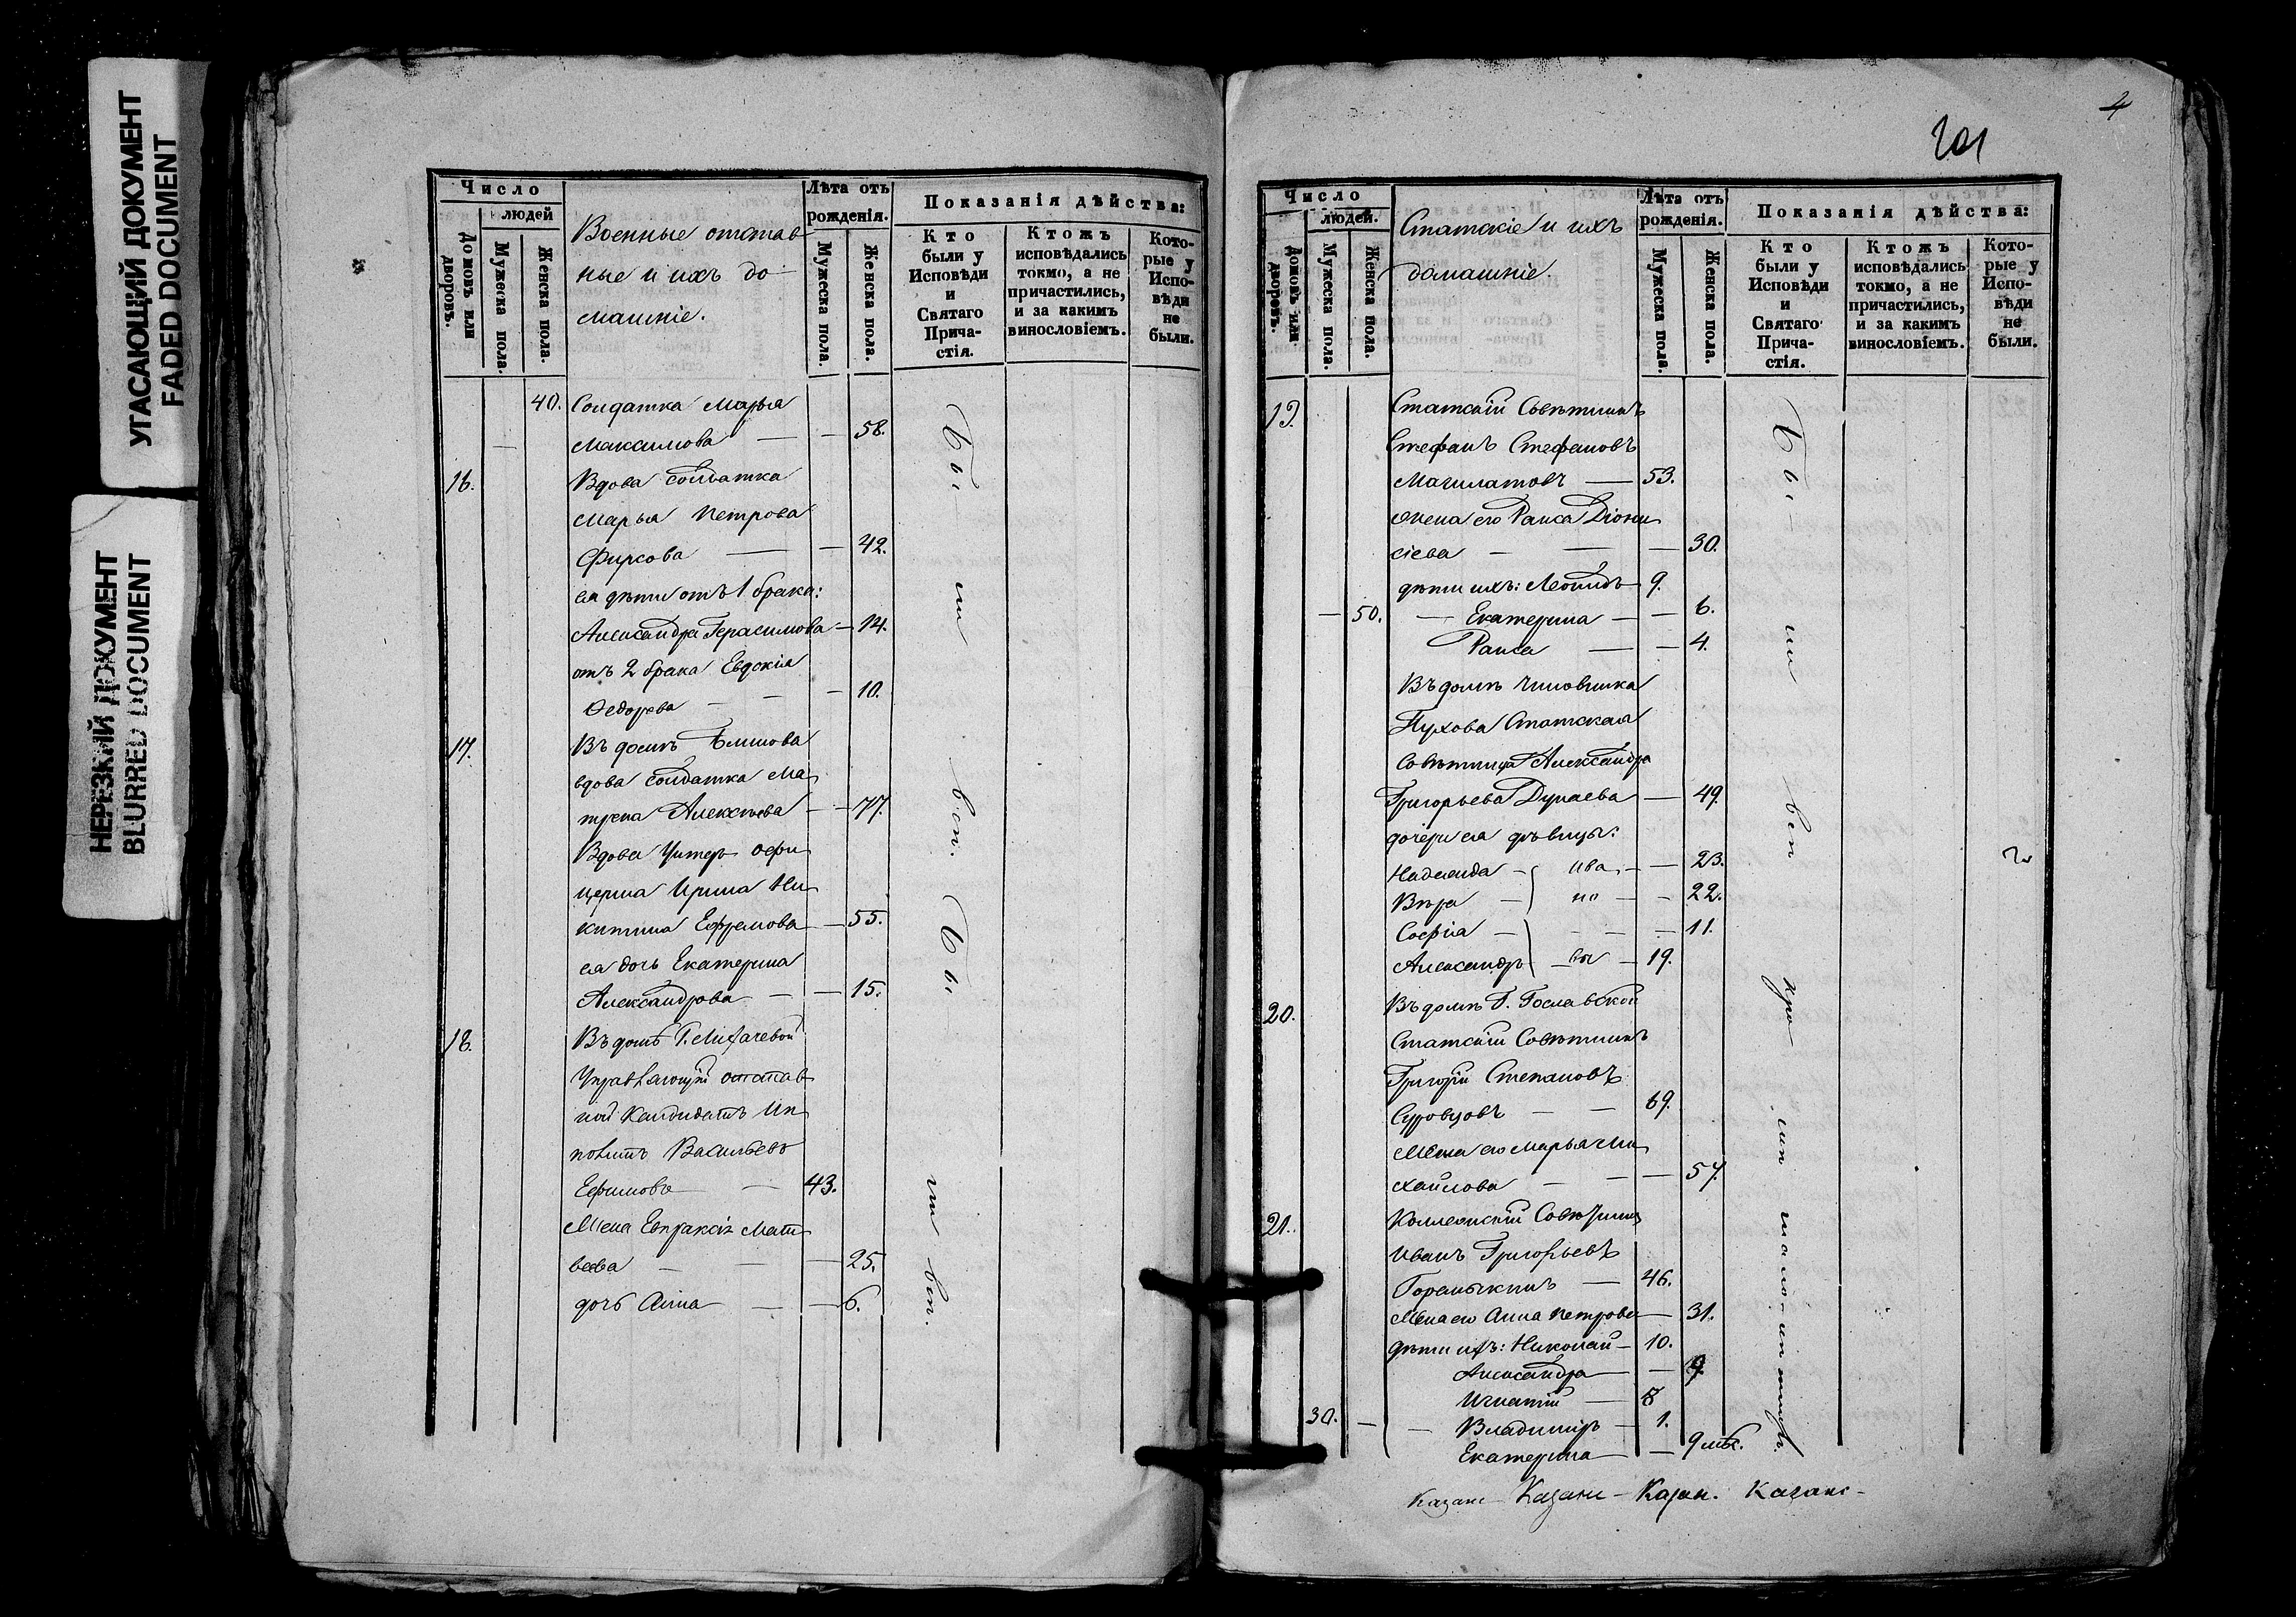 УГАСАЮЩИЙ ДОКУМЕНТ
FADED DOCUMENT
НЕРЕЗКИЙ ДОКУМЕНТ
BLURRED DOCUMENT
Число
людей
Домовъ или дворовъ.
Мужеска пола.
Женска пола.
Военные отстав
ные и ихъ до-
машніе.
Лѣта отъ
рожденія.
Мужеска пола.
Женска пола.
Показанія дѣйства:
Кто
были у
Исповѣди
и
Святаго
Прича-
стія.
Ктожъ
исповѣдались
токмо, а не
причастились,
и за какимъ
винословіемъ.
Кото-
рые у
Испо-
вѣди
не
были.
40. Солдатка Марья
Максимова — — 58.
16. Вдова солдатка
Марья Петрова
Фирсова — — 42.
ея дѣти отъ 1 брака:
Александра Герасимова — 14.
отъ 2 брака Евдокія
Ѳедорова — — 10.
17. Въ домѣ
вдова солдатка Ма
трена Алексѣева — — 77.
Вдова Унтеръ офи
церша Ирина Ни
китина Ефремова — 55.
ея дочь Екатерина
Александрова — — 15.
18. Въ домѣ Г. Лихачевой
Управляющій отстав
ной Кандидатъ Ип
политъ Васильевъ
Ефимовъ — 43.
Жена Евпраксія Матв
веева — — — 25.
дочь Анна — — 6.
Бы
ли
вси.
Бы
ли
вси.
4
201
Число
людей.
Домовъ или дворовъ.
Мужеска пола.
Женска пола.
Статскіе и ихъ
домашніе.
Лѣта отъ
рожденія.
Мужеска пола.
Женска пола.
Показанія дѣйства:
Кто
были у
Исповѣди
и
Святаго
Прича-
стія.
Ктожъ
исповѣдались
токмо, а не
причастились,
и за какимъ
винословіемъ.
Кото-
рые у
Испо-
вѣди
не
были.
19. Статскій Совѣтникъ
Стефанъ Стефановъ
— 53.
жена его Раиса Діони
сіева — — — 30.
дѣти ихъ: Леонидъ — 9.
— 50. — Екатерина — — 6.
Раиса — — 4.
Въ домѣ чиновника
Пухова Статская
Совѣтница Александра
Григорьева Дунаева — 49.
дочери ея дѣвицы:
Надежда — Ива — — 23.
Вѣра — но — — 22.
Софія — — — — 11.
Александръ — вы — 19.
20. Въ домѣ Г. Гославской
Статскій Совѣтникъ
Григорій Степановъ
Суровцовъ — — 69.
Жена его Марья Ми
хайлова — — — 57.
21. Коллежскій Совѣтникъ
Иванъ Григорьевъ
Горемыкинъ — 46.
Жена его Анна Петрова — 31.
дѣти ихъ: Николай — 10.
Александра — — 9.
Игнатій — 8
30. — — Владиміръ — 1.
Екатерина — 9 мѣс.
Бы-
ли
вси
кро-
мѣ
малолѣтнихъ.
Казанс- Казанс- Казан. Казанс-